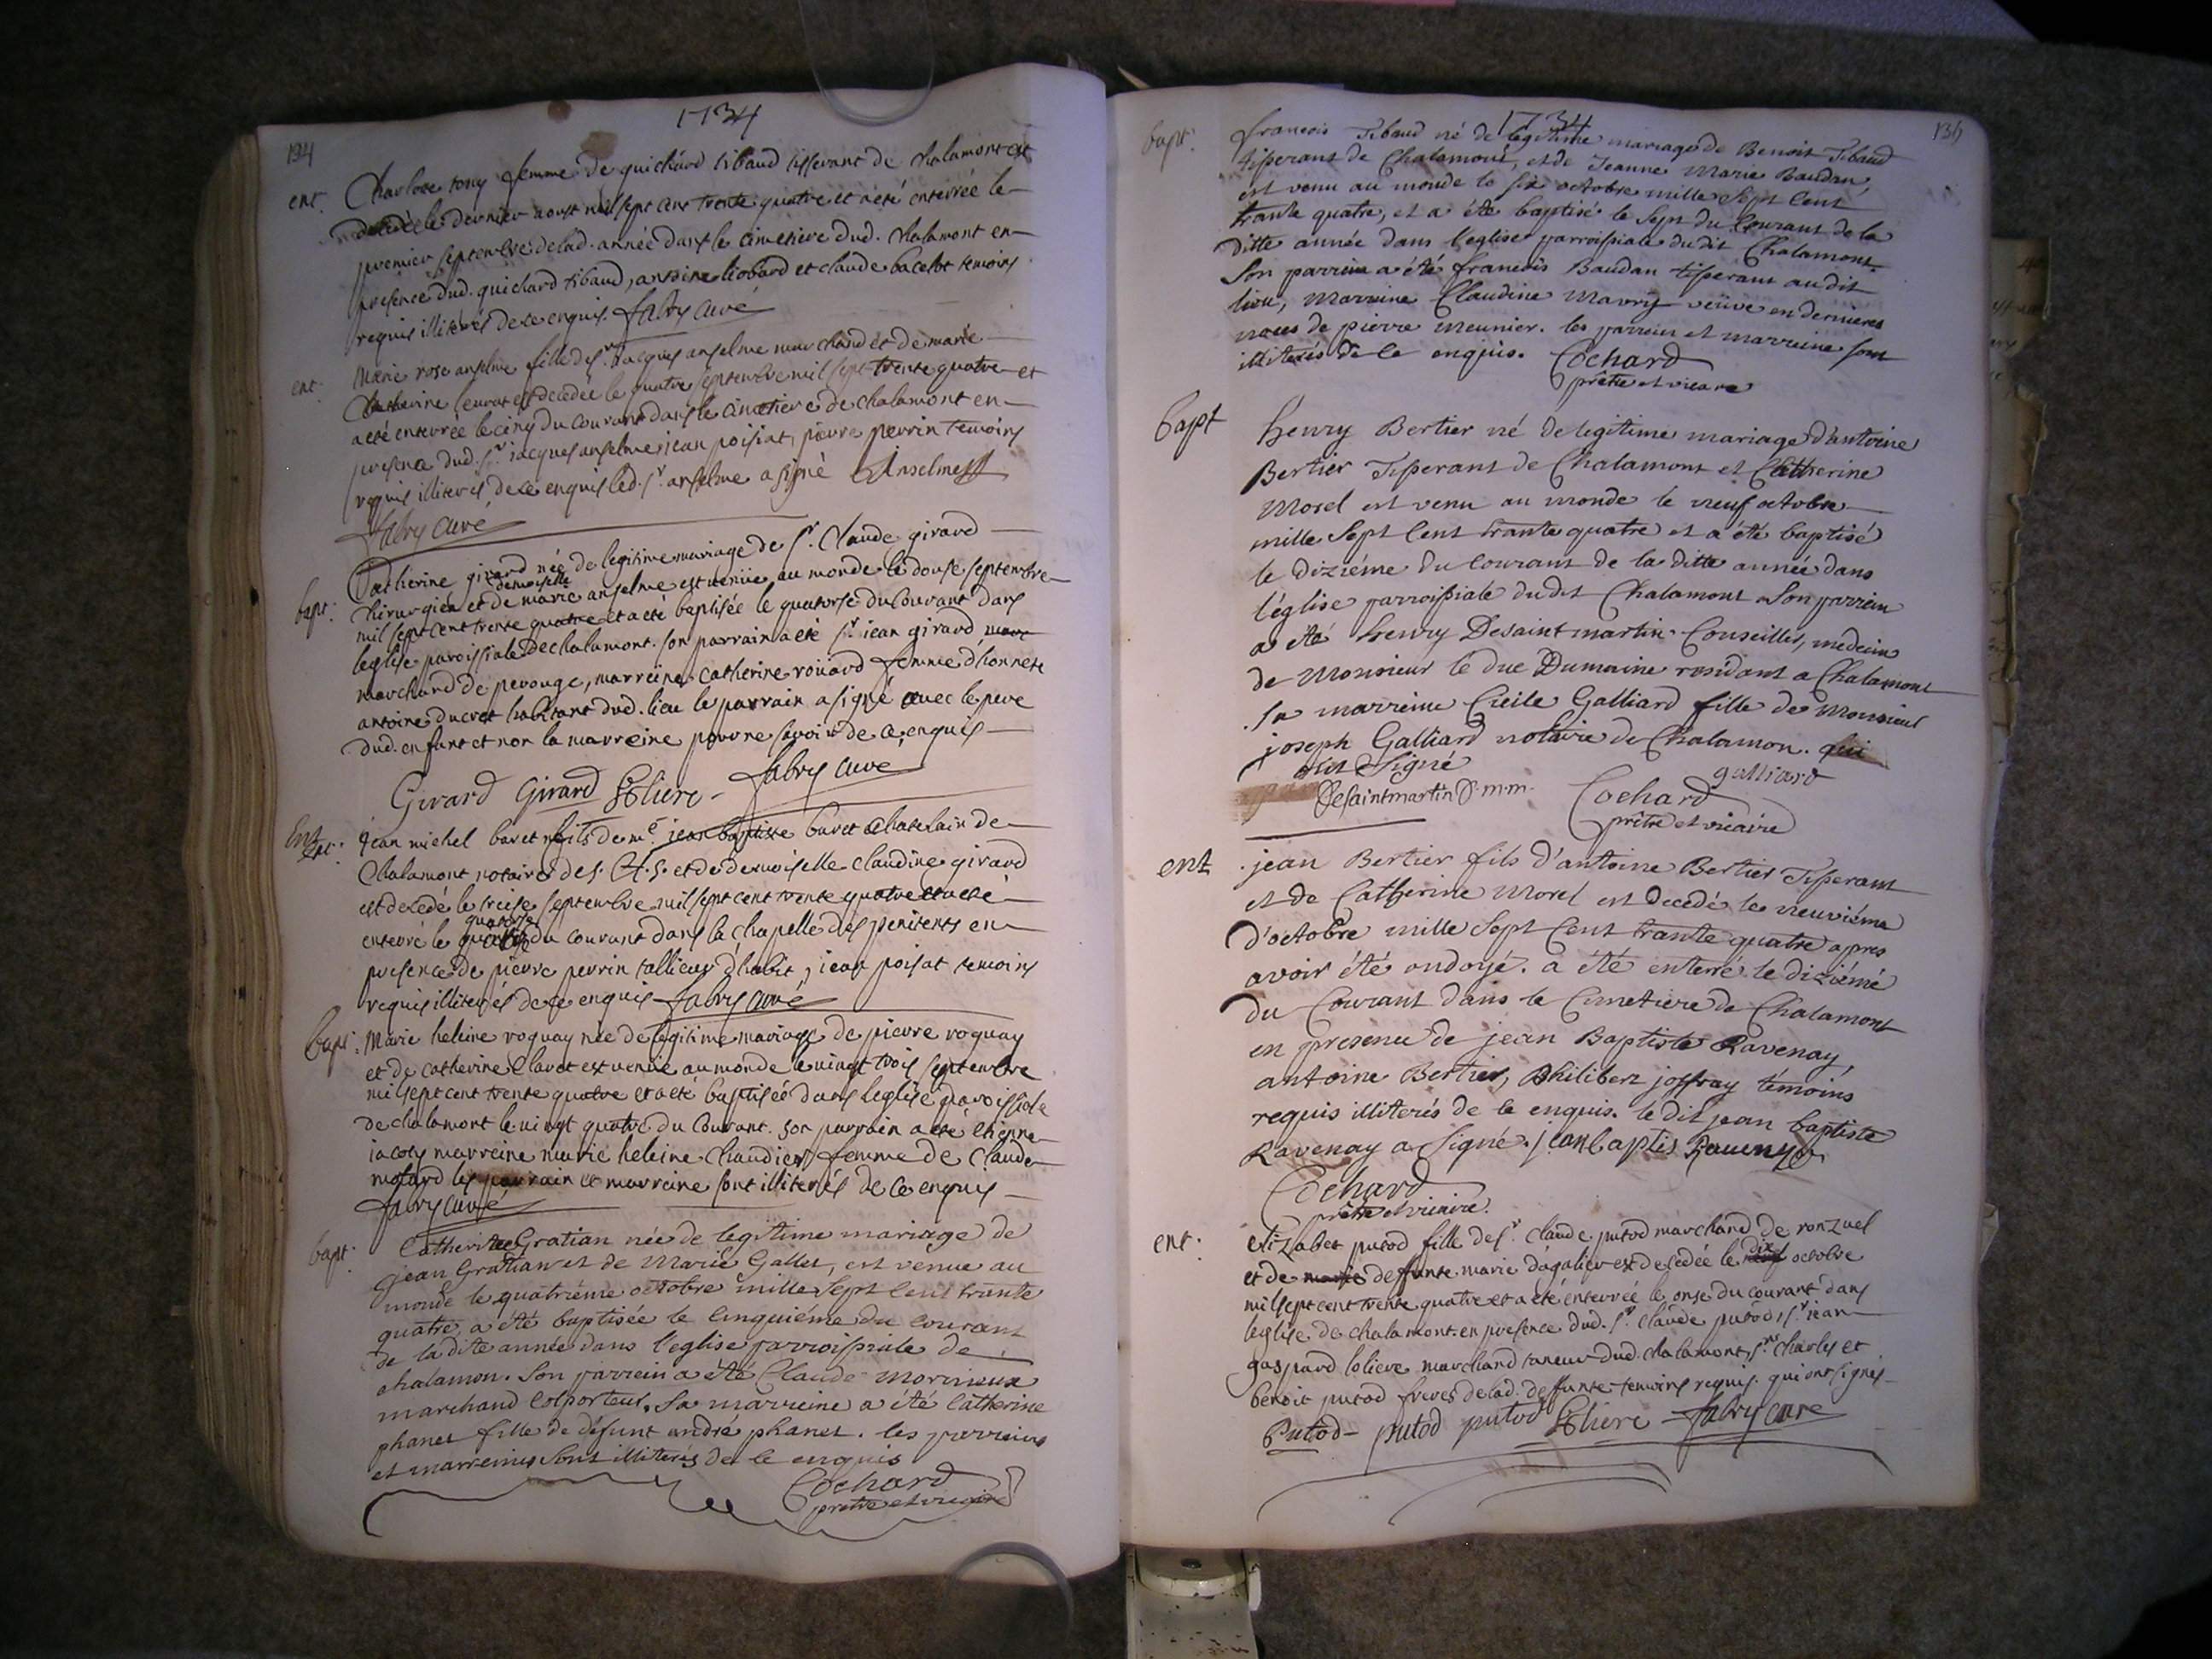 1734
134
ent. Charlote tony femme de guichard tibaud tisserant de chalamont est
decedée le dernier aoust mil sept cent trente quatre et a eté enterrée le
premier septembre de lad. année dans le cimetiere dud. chalamont en
presence dud. guichard tibaud, antoine liobard et claude bacelot temoins
requis illiterés de ce enquis. fabry curé
ent. Marie rose anselme fille de sr. Jacques anselme marchand et de marie
Catherine est decedée le quatre septembre mil sept trente quatre et
a eté enterrée le cinq du courant dans le cimetiere de chalamont en
presence dud. sr. iacques anselme, iean poisiat, pierre perrin temoins
requis illiterés de ce enquis led. sr. anselme a signé Anselme
fabry curé
bapt. Catherine girard née de legitime mariage de sr. Claude girard
demoiselle
chirurgien et de marie anselme est venüe au monde le douse septembre
mil sept cent trente quatre et a eté baptisée le quatorse du courant dans
leglise paroissiale de chalamont. son parrain a eté sr. iean girard marc
marchand de perouge, marreine catherine roüard femme d'honnete
antoine ducret habitant dud. lieu le parrain a signé avec le pere
dud. enfant et non la marreine pour ne sçavoir de ce enquis
Girard Girard Loliere fabry curé
Ent. ent. Jean michel buret fils de me. jean baptiste buret chatelain de
Chalamont notaire de s. A. S. et de demoiselle claudine girard
est decedé le treise septembre mil sept cent trente quatre et a eté
quatorse
enterré le du courant dans la chapelle des penitents en
presence de pierre perrin tallieur d'habit, iean poisat temoins
requis illiterés de ce enquis fabry curé
bapt. Marie heleine roguay née de legitime mariage de pierre roguay
et de catherine Clavet est venüe au monde le vingt trois septembre
mil sept cent trente quatre et a eté baptisée dans leglise paroissiale
de chalamont le vingt quatre du courant. son parrain a eté etienne
iacoty marreine marie heleine chaudier femme de claude
motard les parrain et marreine sont illiterés de ce enquis
fabry curé
bapt. Catherine Gratian née de legitime mariage de
jean Gratian et de Marie Gallet, est venue au
monde le quatriéme octobre mille sept cent trante
quatre, a été baptisée le cinquiéme du courant
de la dite année dans l'eglise parroissiale de
chalamon. Son parrein a été Claude morineux
marchand colporteur. Sa marreine a été Catherine
phanet fille de défunt andré phanet. les parreins
et marreines sont illiterés de ce enquis
Cochard
prêtre et vicaire
1734
135
bapt. francois Tibaud né de legitime mariage de Benoit Tibaud
tisserant de Chalamont, et de Jeanne Marie Baudan,
est venu au monde le six octobre mille sept cent
trante quatre, et a été baptisé le sept du courant de la
ditte année dans l'eglise parroissiale du dit Chalamont.
Son parrein a été francois Baudan tisserant au dit
lieu, marreine Claudine Mavry veüve en dernieres
noces de pierre meunier. les parrein et marreine sont
illiterés de ce enquis. Cochard
prêtre et vicaire
bapt henry Bertier né de legitime mariage d'antoine
Bertier Tisserant de Chalamont et Catherine
Morel est venu au monde le neuf octobre
mille sept cent trante quatre et a été baptisé
le diziéme du courant de la ditte année dans
l'église parroissiale du dit Chalamont Son parrein
a été henry Desaint martin Conseiller, medecin
de Monsieur le duc Dumaine residant a Chalamont
Sa marreine Cicile Galliard fille de Monsieur
joseph Galliard notaire de Chalamon. qui
ont signé
galliard
Desaintmartin D.m.m. Cochard
prêtre et vicaire
ent jean Bertier fils d'antoine Bertier Tisserant
et de Catherine Morel est decedé le neuviéme
d'octobre mille sept cent trante quatre apres
avoir été ondoyé. a été enterré le diziémé
du Courant dans le Cimetiere de Chalamont
en presence de jean Baptiste Ravenay,
antoine Bertier, Philibert joffray témoins
requis illiterés de ce enquis. le dit jean baptiste
Ravenay a signé. jean baptis Raueny
Cochard
prêtre et vicaire.
ent. elizabet putod fille de sr. claude putod marchand de ronzuel
dix
et de marie deffunte marie dagalier est decedée le neuf octobre
mil sept cent trente quatre et a eté enterrée le onse du courant dans
leglise de chalamont. en presence dud. sr. claude putod, sr. iean
gaspard loliere marchand taneur dud. chalamont, srs. charles et
benoit putod freres de lad. deffunte temoins requis. qui ont signés
Putod putod putod Loliere fabry cure